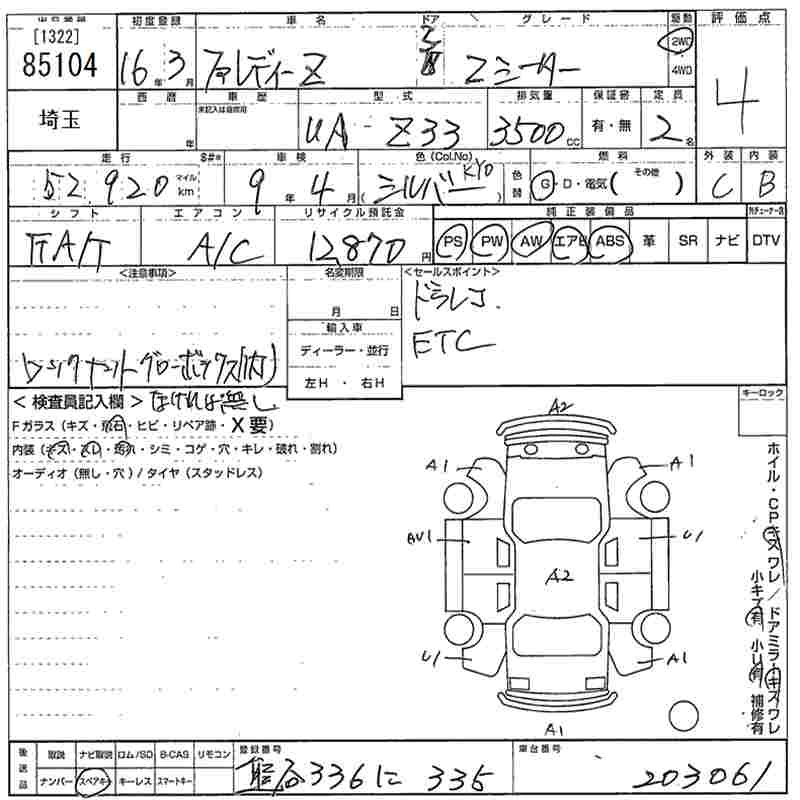 出品番号 初度登録 車名 ドア グレード 駆動 評価点
[1322]
85104 16年3月 フェアレディーZ 3 Zシーター 2WD 4WD 4
西暦 車歴 型式 排気量 保証書 定員
未記入は自家用
埼玉 年 UA-Z33 3500cc 有・無 2名
走行 S#* 車検 色(Col.No) 燃料 外装 内装
52.920 マイル km 9年4月 (シルバー KY0) 色替 G・D・電気( その他 ) C B
シフト エアコン リサイクル預託金 純正装備品
FA/T A/C 12,870円 PS PW AW エアB ABS 革 SR ナビ DTV
<注意事項> 名変期限 <セールスポイント>
月 日 ドラレコ.
輸入車 ETC
ディーラー・並行
左H・右H
<検査員記入欄> なければ無し キーロック
Fガラス(キズ・飛石・ヒビ・リペア跡・X要)
内装(キズ・スレ・汚れ・シミ・コゲ・穴・キレ・破れ・割れ)
オーディオ(無し・穴)/タイヤ(スタッドレス)
A2
A1 A1
BU1 U1
A2
U1 A1
A1
ホイル・CPキズワレ/ドアミラーキズワレ
小キズ有 小U有 補修有
後送品 取説 ナビ取説 ロム/SD B-CAS リモコン 登録番号 車台番号
ナンバー スペアキー キーレス スマートキー 熊谷336に335 203061